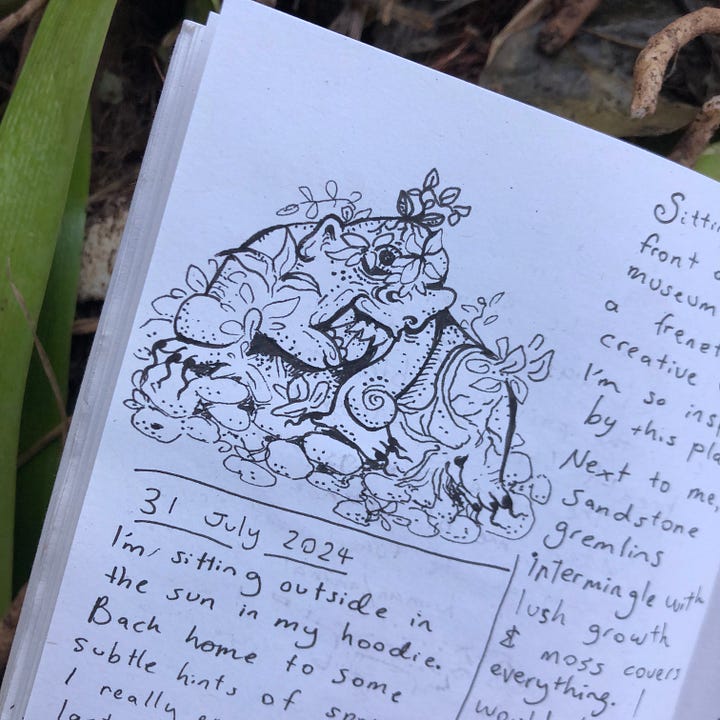 31 July 2024
I'm sitting outside in
the sun in my hoodie.
Back home to some
subtle hints of
I really
front
museum
a
creative
I'm so
by this
Next to me,
Sandstone
gremlins
intermingle with
lush growth
& moss covers
everything. I